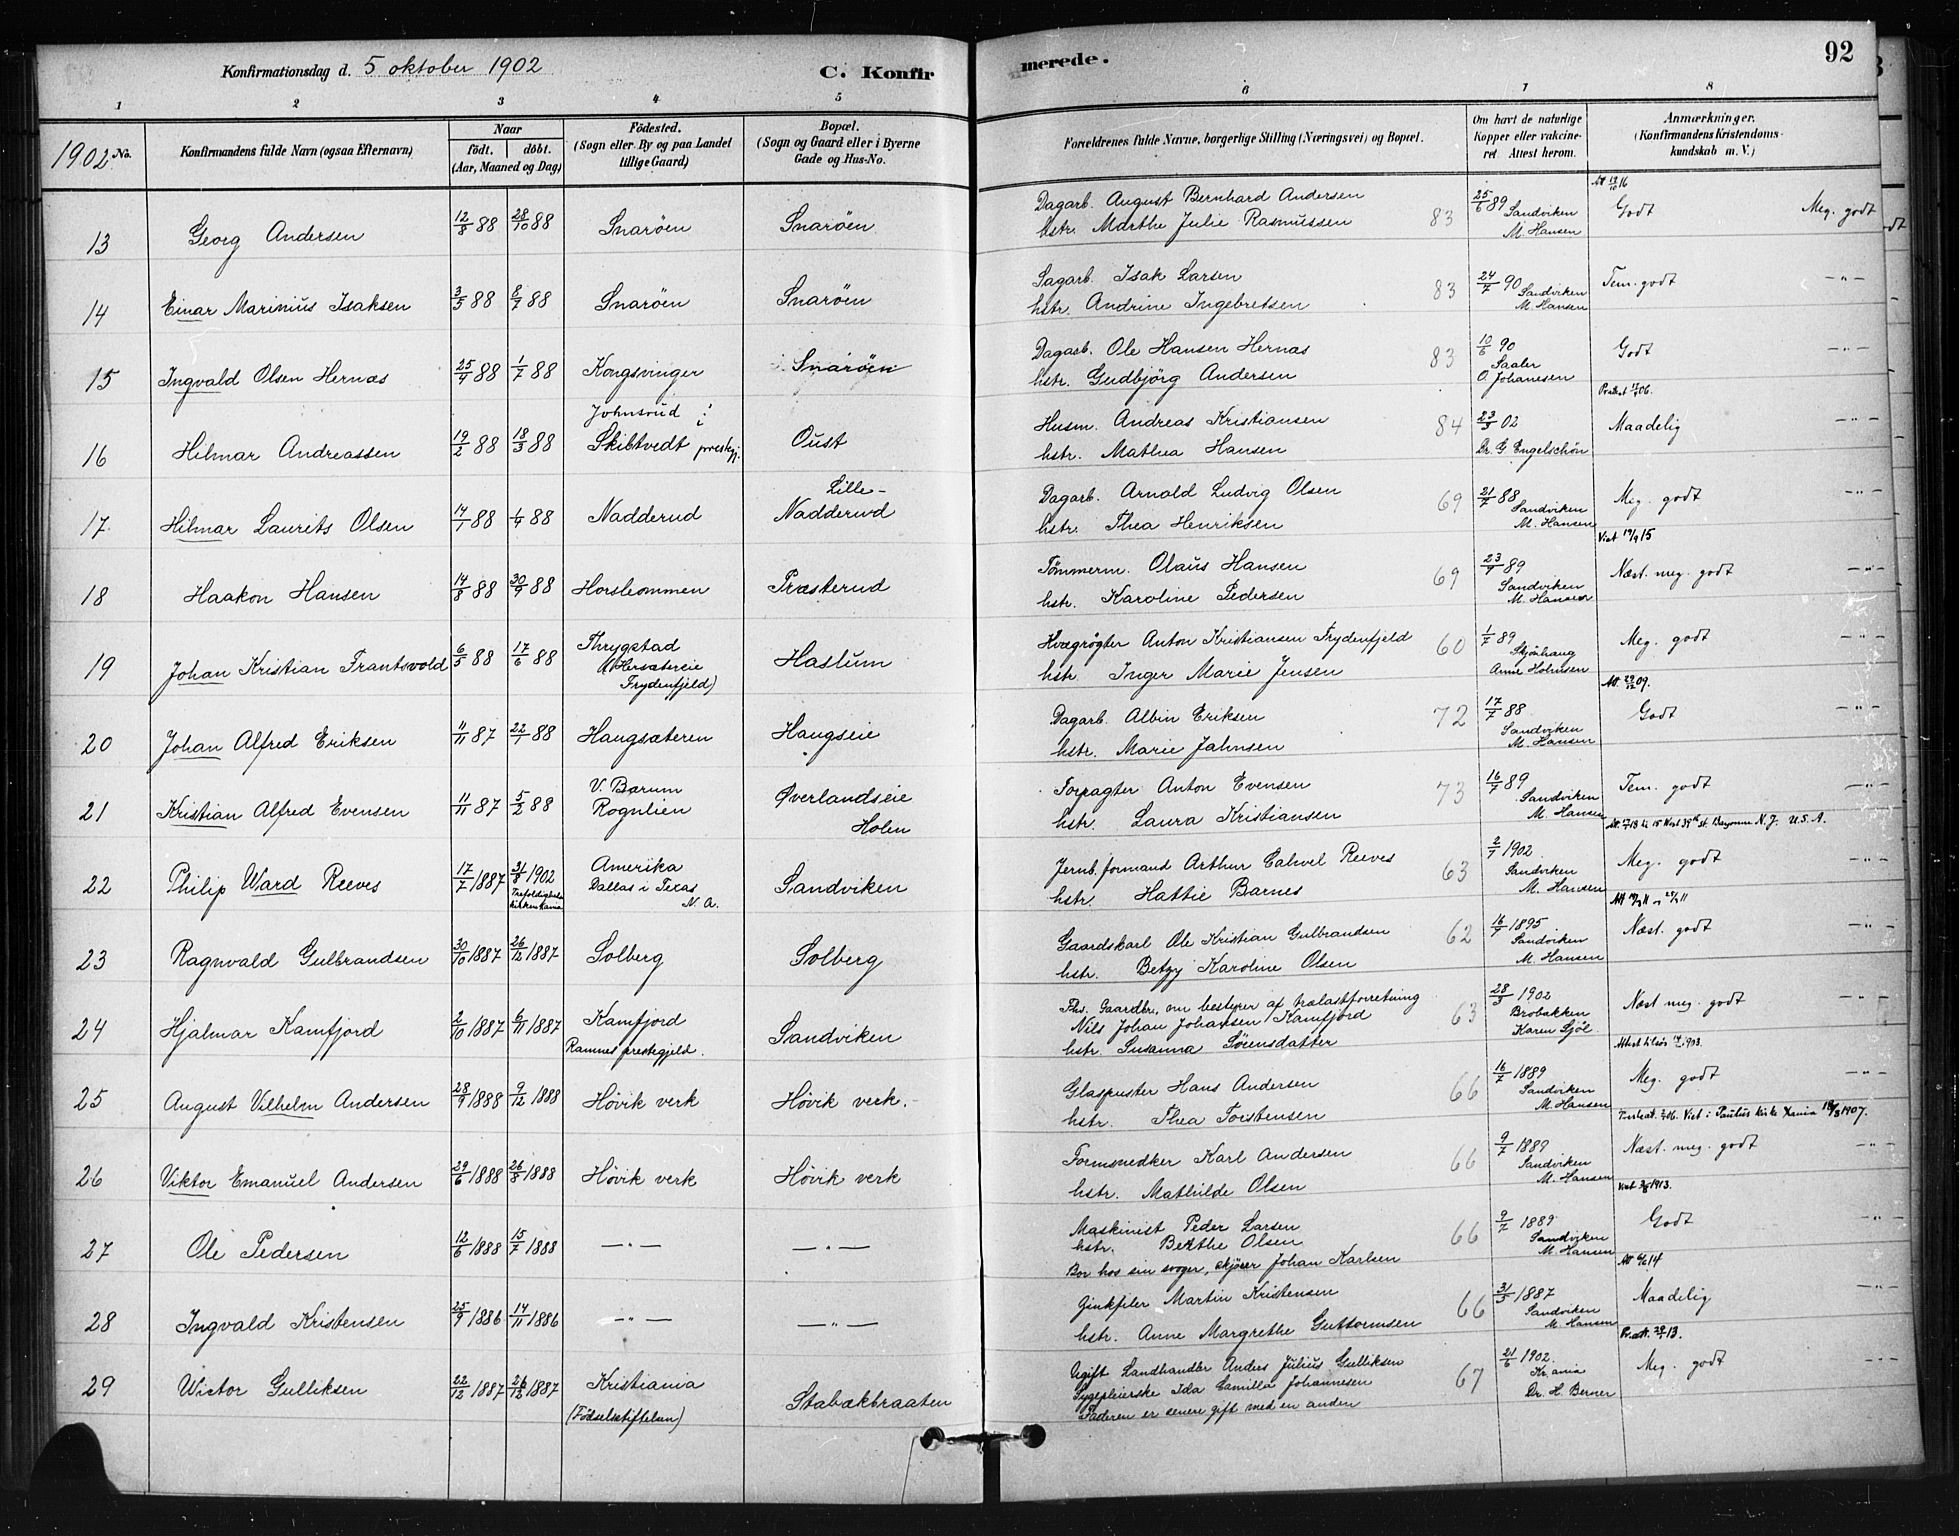 Konfirmationsdag d. 5 oktober 1902
C. Konfirmerede.
92
1 2 3 4 5 6 7 8
1902 No.
Konfirmandens fulde Navn (ogsaa Efternavn)
Naar
født. døbt.
(Aar, Maaned og Dag)
Fødested.
(Sogn eller By og paa Landet
tillige Gaard)
Bopæl.
(Sogn og Gaard eller i Byerne
Gade og Hus-No.
Forældrenes fulde Navne, borgerlige Stilling (Næringsvei) og Bopæl.
Om havt de naturlige
Kopper eller vakcine-
ret. Attest herom.
Anmærkninger.
(Konfirmandens Kristendoms-
kundskab m. V.)
13 Georg Andersen 12/8 88 28/10 88 Snarøen Snarøen
Dagarb. August Bernhard Andersen
hstr. Marthe Julie Rasmussen 83
25/6 89 Sandviken
M. Hansen
Godt Meg. godt
14 Einar Marinius Isaksen 3/5 88 8/7 88 Snarøen Snarøen
Sagarb. Isak Larsen
hstr. Andrine Ingebretsen 83
24/7 90 Sandviken
M. Hansen
Tem. godt -"-
15 Ingvald Olsen Hernæs 25/4 88 1/7 88 Kongsvinger Snarøen
Dagarb. Ole Hansen Hernæs
hstr. Gudbjörg Andersen 83
10/6 90
Saaler
O. Johanesen
Godt -"-
16 Hilmar Andreassen 19/2 88 18/3 88
Johnsrud i
Skibtvedt prestegj. Oust
Husm. Andreas Kristiansen
hstr. Mathea Hansen 84
23/3 02
Dr. G. Engelschøn
Maadelig -"-
17 Hilmar Laurits Olsen 14/1 88 1/4 88 Nadderud
Lille-
Nadderud
Dagarb. Arnold Ludvig Olsen
hstr. Thea Henriksen 69
21/7 88 Sandviken
M. Hansen
Meg. godt -"-
Viet 19/9 15
18 Haakon Hansen 14/8 88 30/9 88 Horslommen Præsterud
Tømmerm. Olaus Hansen
hstr. Karoline Pedersen 69
23/9 89
Sandviken
M. Hansen
Næst. meg. godt -"-
19 Johan Kristian Frantsvold 6/5 88 17/6 88
Thrygstad
(Hersætereie
Frydenfjeld) Haslum
Kvægrøgter Anton Kristiansen Frydenfjeld
hstr. Inger Marie Jensen 60
1/7 89
Skjønhaug
Anne Holmsen
Meg. godt -"-
20 Johan Alfred Eriksen 11/11 87 22/1 88 Haugsæteren Haugseie
Dagarb. Albin Eriksen
hstr. Marie Jahnsen 72
17/7 88
Sandviken
M. Hansen
Godt -"-
21 Kristian Alfred Evensen 11/11 87 5/2 88
V. Bærum
Rognlien
Øverlandseie
Holen
Forpagter Anton Evensen
hstr. Laura Kristiansen 73
16/7 89
Sandviken
M. Hansen
Tem. godt -"-
N. J. U. S. A.
22 Philip Ward Reeves 17/7 1887 31/8 1902
Amerika
Dallas i Texas
N. A. Sandviken
Jernb. formand Arthur Cahvel Reeves
hstr. Hattie Barnes 63
2/7 1902
Sandviken
M. Hansen
Meg. godt -"-
23 Ragnvald Gulbrandsen 30/10 1887 26/12 1887 Solberg Solberg
Gaardskarl Ole Kristian Gulbrandsen
hstr. Betzy Karoline Olsen 62
16/9 1895
Sandviken
M. Hansen
Næst. godt -"-
24 Hjalmar Kamfjord 2/10 1887 6/11 1887 Kamfjord
Ramnes prestegjeld. Sandviken
Fhv. Gaardbr., nu bestyrer af trælastforretning
Nils Johan Johansen Kamfjord
hstr. Susanna Sørensdatter 63
28/3 1902
Brobakken
Karen Sjøl
Næst meg. godt -"-
25 August Vilhelm Andersen 28/9 1888 9/12 1888 Høvik verk Høvik verk.
Glaspuster Hans Andersen
hstr. Thea Torstensen 66
16/7 1889
Sandviken
M. Hansen
Meg. godt -"-
Viet i Paulus kirke Xania 18/3 1907.
26 Viktor Emanuel Andersen 29/6 1888 26/8 1888 Høvik verk Høvik verk
Formsnedker Karl Andersen
hstr. Mathilde Olsen 66
9/7 1889
Sandviken
M. Hansen
Næst. meg. godt -"-
27 Ole Pedersen 12/6 1888 15/7 1888 -"- -"-
Maskinist Peder Larsen
hstr. Berthe Olsen
Bor hos sin svoger, skjører Johan Karlsen 66
9/7 1889
Sandviken
M. Hansen
Godt -"-
28 Ingvald Kristensen 25/9 1886 14/11 1886 -"- -"-
Ginkfiler Martin Kristensen
hstr. Anne Margrethe Guttormsen 66
31/5 1887
Sandviken
M. Hansen
Maadelig -"-
29 Wictor Gulliksen 22/12 1887 26/12 1887 Kristiania
(Fødselsstiftelsen) Stabækbraaten
Ugift Landhandler Anders Julius Gulliksen
Sygepleierske Ida Camilla Johannesen
Faderen er senere gift med en anden 67
21/6 1902.
Kr.ania
Dr. H. Berner
Meg. godt -"-